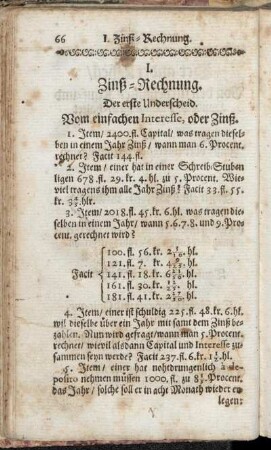 66 I. Zinß-Rechnung.
I.
Zinß-Rechnung.
Der erste Underscheid.
Vom einfachen Interesse, oder Zinß.
1. Item/ 2400. fl. Capital/ was tragen dieselben
in einem Jahr Zinß/ wann man 6. Procent.
rechnet? Facit 144. fl.
2. Item/ einer hat in einer Schreib-Stuben
ligen 678. fl. 29. kr. 4. hl. zu 5. Procent. Wieviel
tragens ihm alle Jahr Zinß? Facit 33. fl. 55.
kr. hlr.
3. Item/ 2018. fl. 45. kr. 6. hl. was tragen dieselben
in einem Jahr/ wann 5. 6. 7. 8. und 9. Procent.
gerechnet wird?
100. fl. 56. kr. hl.
121. fl. 7. kr. hl.
Facit 141. fl. 18. kr. hl.
161. fl. 30. kr. hl.
181. fl. 41. kr. hl.
4. Item/ einer ist schuldig 225. fl. 48. kr. 6. hl.
wil dieselbe über ein Jahr mit samt dem Zinß bezahlen.
Nun wird gefragt/ wann man 5. Procent.
rechnet/ wievil als dann Capital und Interesse zusammen
seyn werde? Facit 237. fl. 6. kr. hl.
5. Item/ einer hat nohtdrungenlich à deposito
nehmen müssen 1000. fl. zu 8½. Procent.
das Jahr/ solche soll er in acht Monath wieder erlegen: